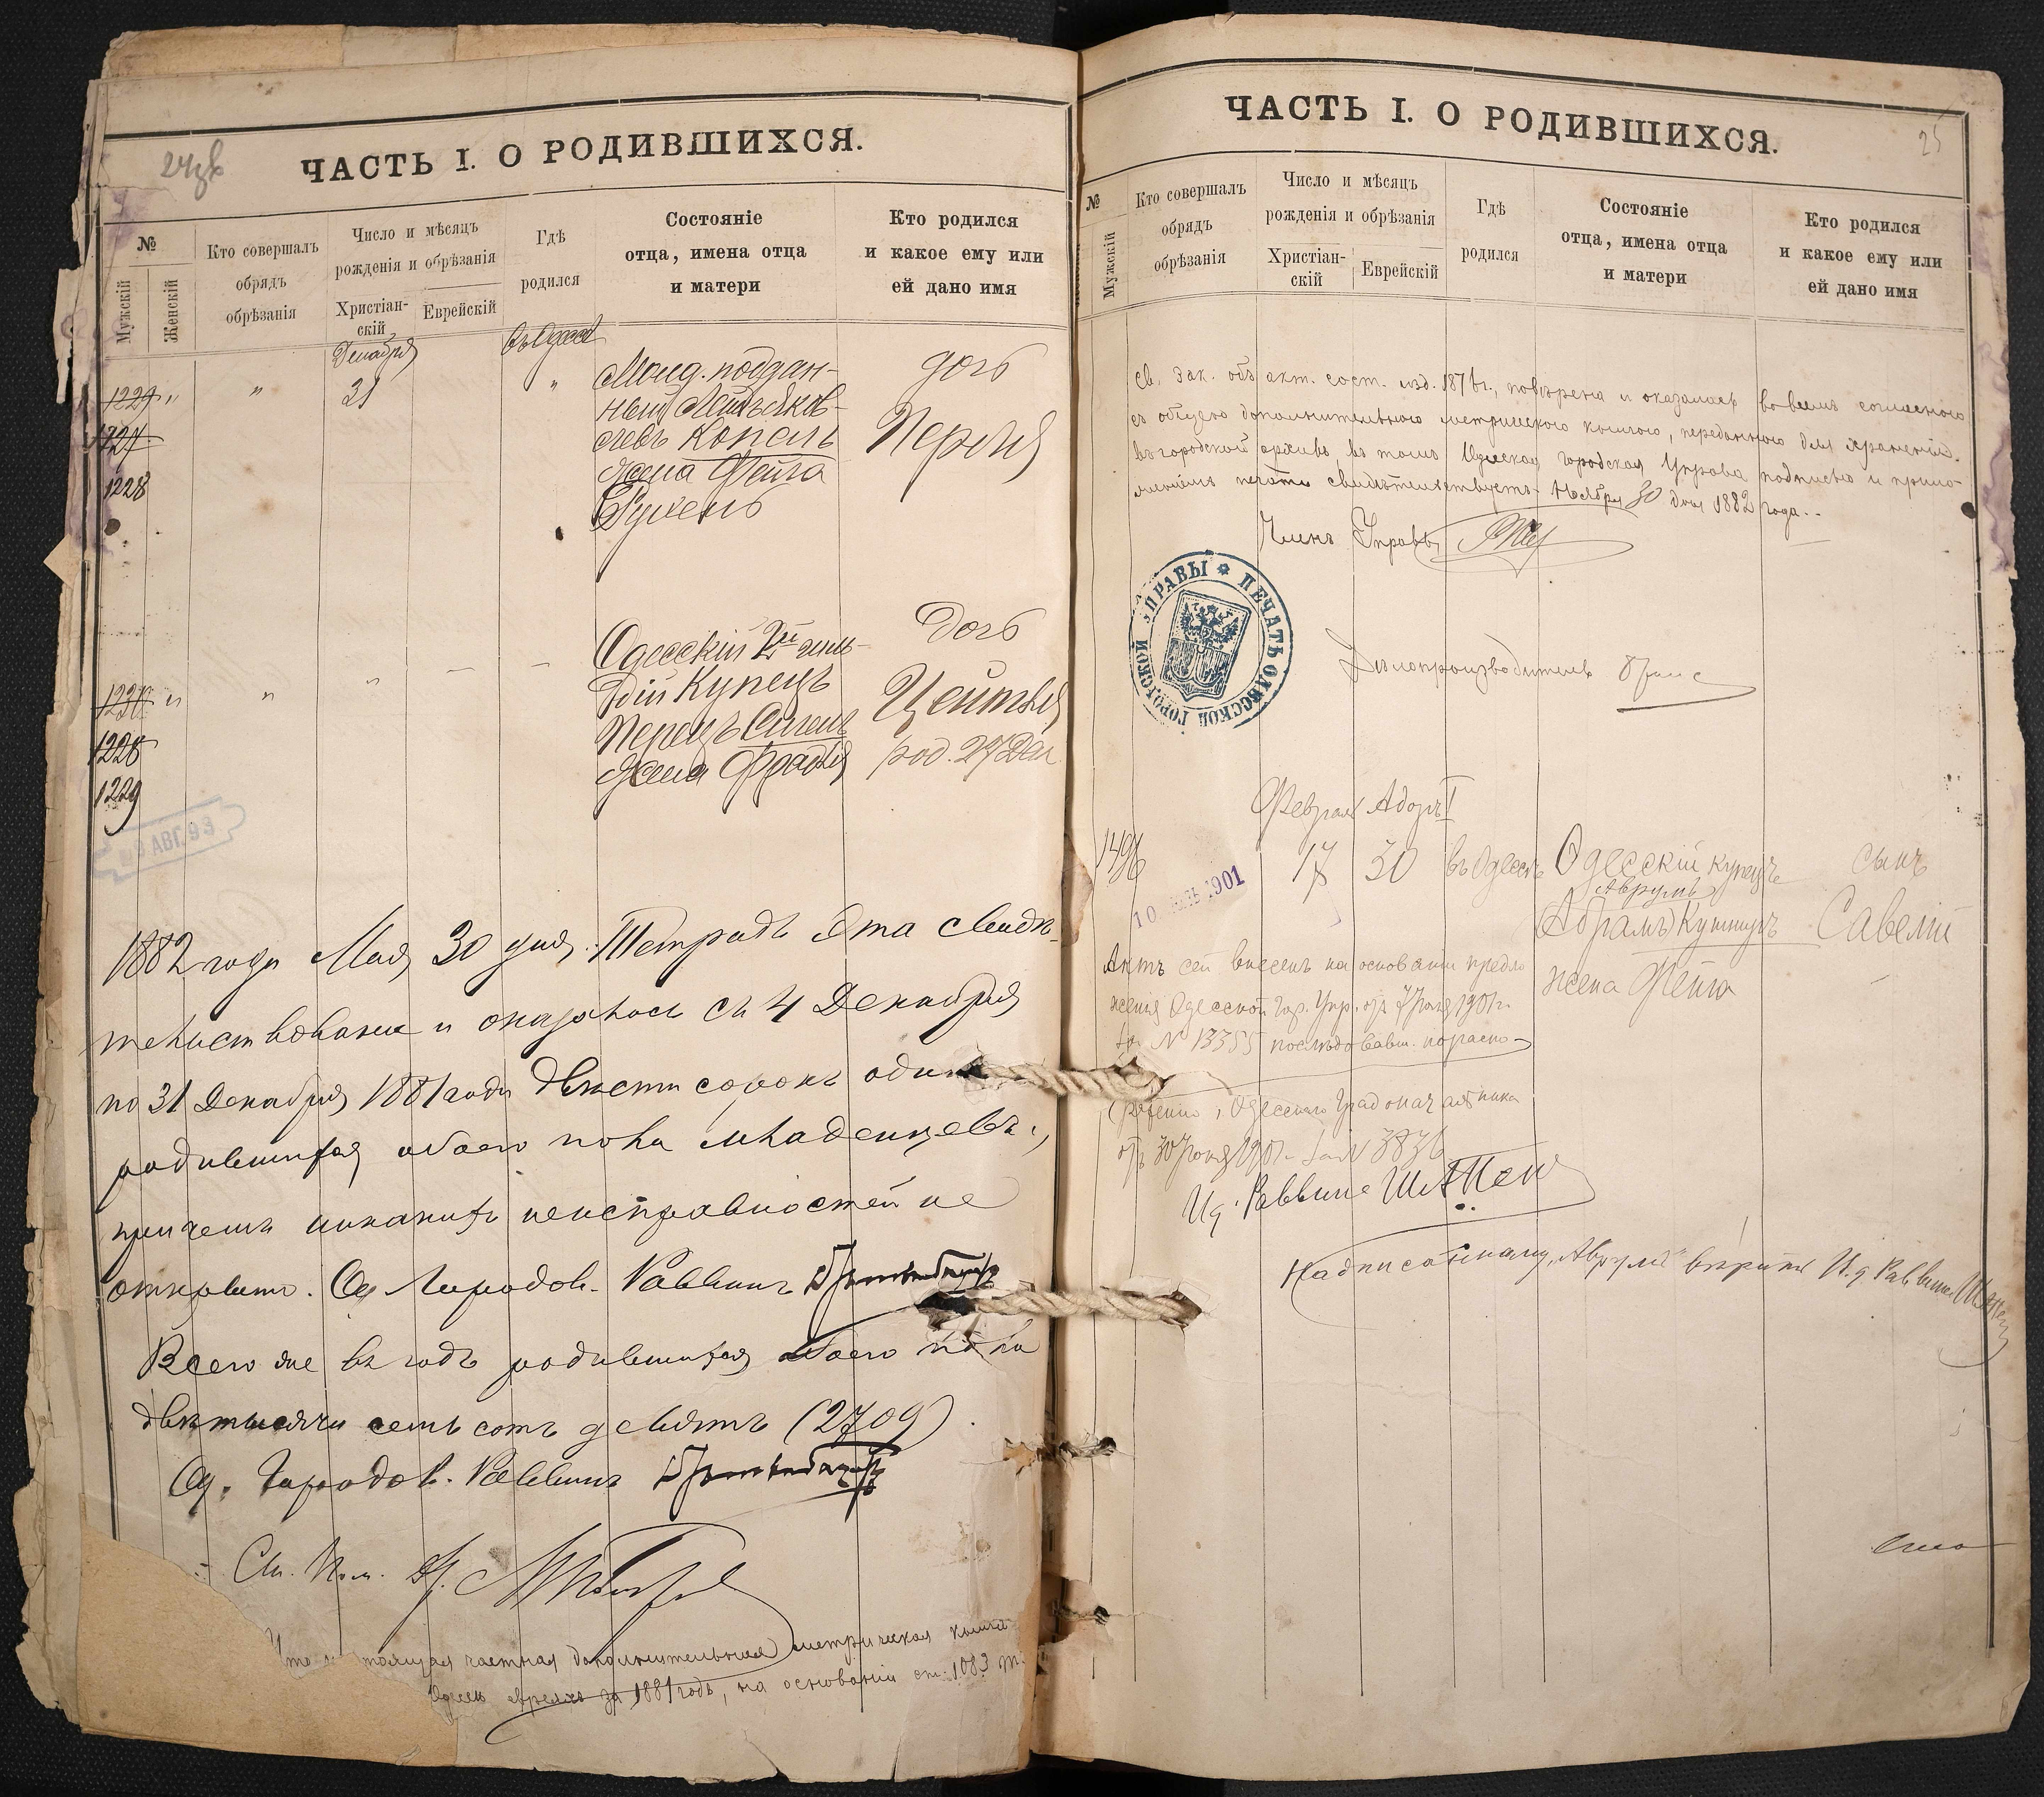 24об
ЧАСТЬ I. О РОДИВШИХСЯ.
№
Мужскій
Женскій
Кто совершалъ
обрядъ
обрѣзанія
Число и мѣсяцъ
рожденія и обрѣзанія
Христіан-
скій
Еврейскій
Гдѣ
родился
Состояніе
отца, имена отца
и матери
Кто родился
и какое ему или
ей дано имя
Декабря
въ Одессѣ
1229 " " 31 "
1227
1228
Молд. поддан-
ный
Копель
жена Фейга
Рухень
дочь
Перля
1230 " "
1228
1229
Одесскій 2й гиль-
дій Купецъ
Перецъ
жена Фрадья
дочь
Цейтля
род. 27 Дек
АВГ. 93
1882 года Мая 30 дня. Тетрадь эта свидѣ-
тельствована и оказалось съ 4 Декабря
по 31 Декабря 1881 года двѣсти сорокъ одинъ
родившихся обоего пола младенцевъ,
при чемъ никакихъ неисправностей не
открыто. Городов. Раввинъ
Всего же въ годъ родившихся обоего пола
двѣ тысячи семь сотъ девять (2709).
Городов. Раввинъ
Ст. Пом.
частная дополнительная метрическая книга
евреяхъ за 1881 годъ, на основаніи ст. 1083 т.
25
ЧАСТЬ I. О РОДИВШИХСЯ.
№
Мужскій
Кто совершалъ
обрядъ
обрѣзанія
Число и мѣсяцъ
рожденія и обрѣзанія
Христіан-
скій
Еврейскій
Гдѣ
родился
Состояніе
отца, имена отца
и матери
Кто родился
и какое ему или
ей дано имя
св. зак. объ акт. сост. изд. 1876 г., повѣрена и оказалась во всемъ согласною
съ общею дополнительною метрическою книгою, переданною для храненія
въ городской архивъ, въ томъ Одесская Городская Управа подписью и прило-
женіемъ печати свидѣтельствуетъ. Ноября 30 дня 1882 года.
Членъ Управы
ПЕЧАТЬ ОДЕССКОЙ ГОРОДСКОЙ УПРАВЫ
Дѣлопроизводитель
Февраль Адоръ I
1496 17 30 въ Одессѣ
Одесскій купецъ
Аврумъ
Абрамъ
жена Фейга
сынъ
Савелій
10 1901
Актъ сей внесенъ на основаніи предло
женія Одесской Гор. Упр. отъ 7 1901 г.
за № 13355 послѣдовавш. по распо-
ряженію Одесскаго Градоначальника
отъ 30 1901 г. за № 3836
И.д. Раввина
Надписанному „Аврумъ" вѣрить И.д. Раввина